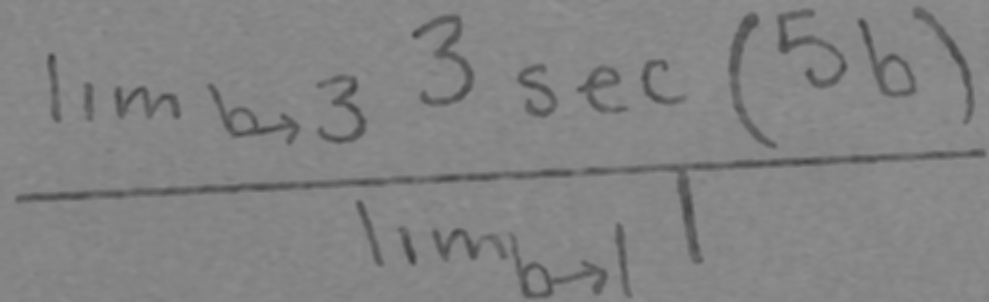 lim b→3 3 sec (5b)
lim b→1 1